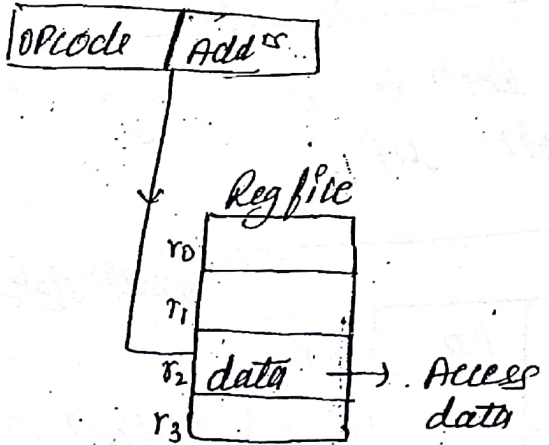 OPCode Addrs
Reg file
r0
r1
r2 data → Access
data
r3